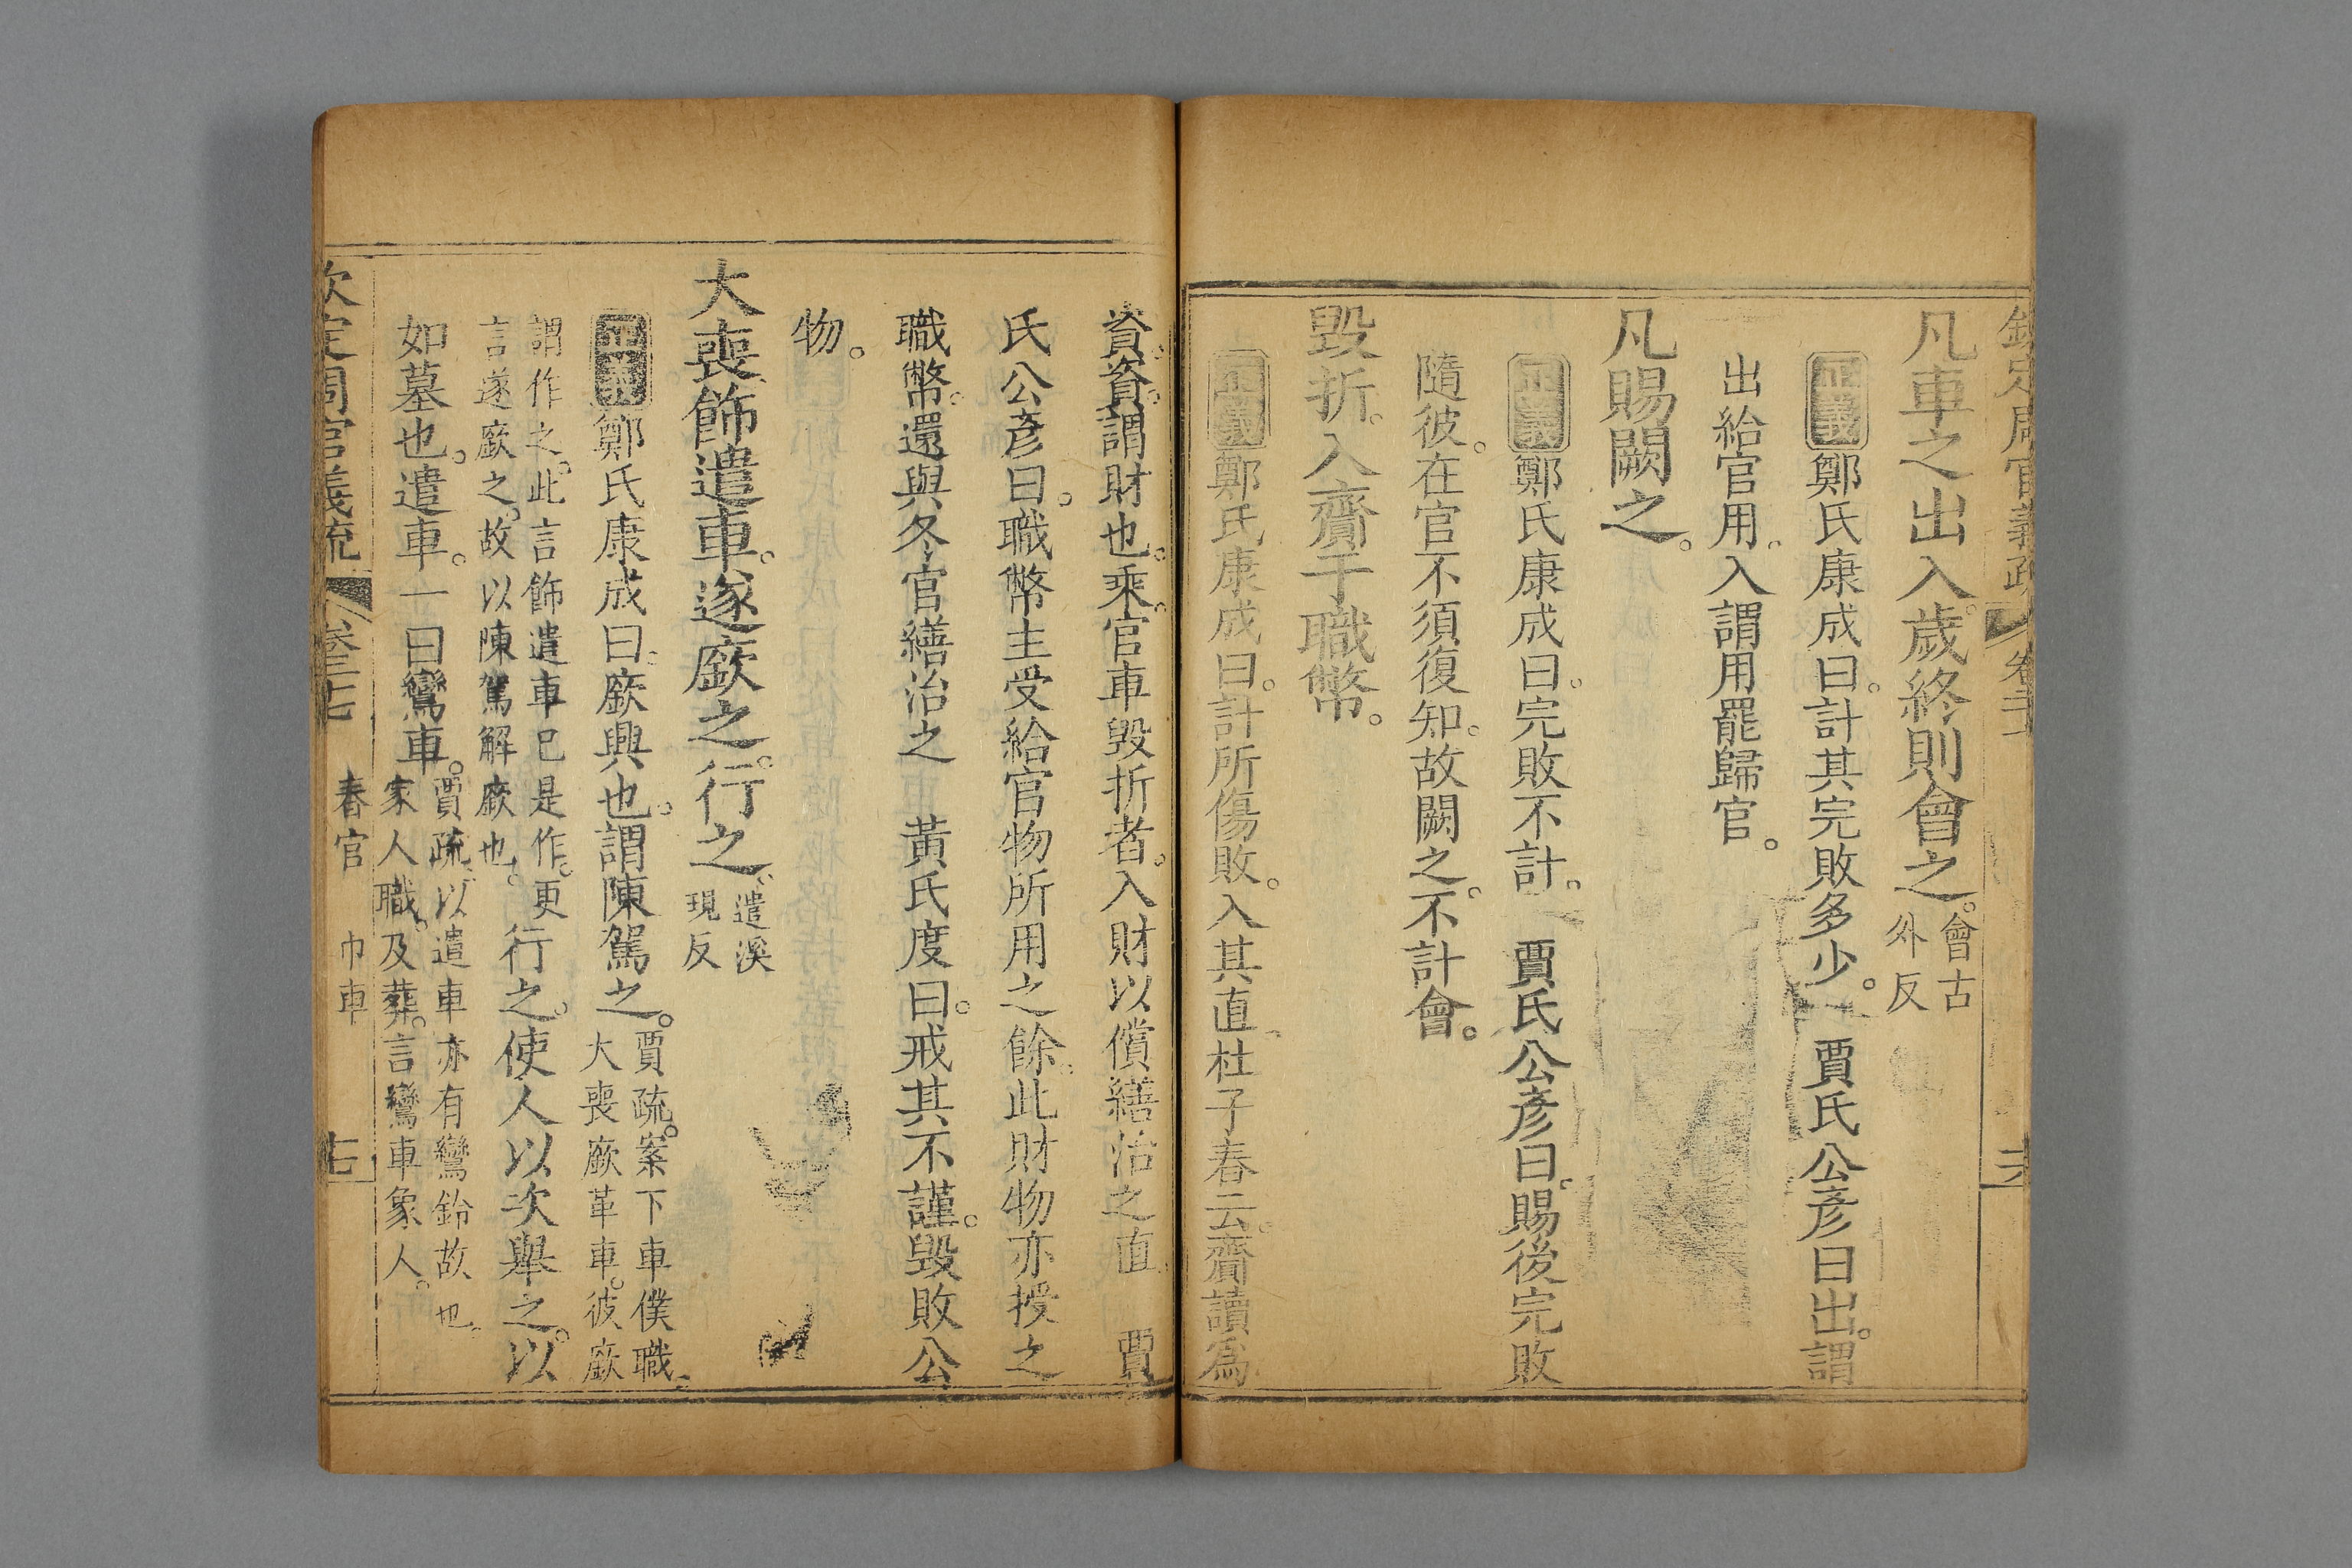 欽定周官義疏 卷二十七 十六
凡車之出入。歲終則會之。會古外反
正義鄭氏康成曰。計其完敗多少。 賈氏公彥曰出。謂
出給官用。入謂用罷歸官。
凡賜闕之。
正義鄭氏康成曰。完敗不計。 賈氏公彥曰。賜後完敗
隨彼。在官不須復知。故闕之。不計會。
毀折。入齎于職幣。
正義鄭氏康成曰。計所傷敗。入其直。杜子春云。齎讀爲
資。資。謂財也。乘。官車毀折者。入財以償繕治之直。 賈
氏公彥曰。職幣主受給官物所用之餘。此財物亦授之
職幣。還與冬官繕治之 黃氏度曰。戒其不謹。毀敗公
物。
大喪飾遣車。遂廞之。行之。遣溪現反
正義鄭氏康成曰。廞興也。謂陳駕之。賈疏。案下車僕職。
大喪廞革車。彼廞
謂作之。此言飾遣車已是作。更
言遂廞之。故以陳駕解廞也。行之。使人以次舉之。以
如墓也。遣車。一曰鸞車。賈疏。以遣車亦有鸞鈴故也。
家人職。及葬。言鸞車象人。
欽定周官義疏 卷二十七 春官 巾車 十七